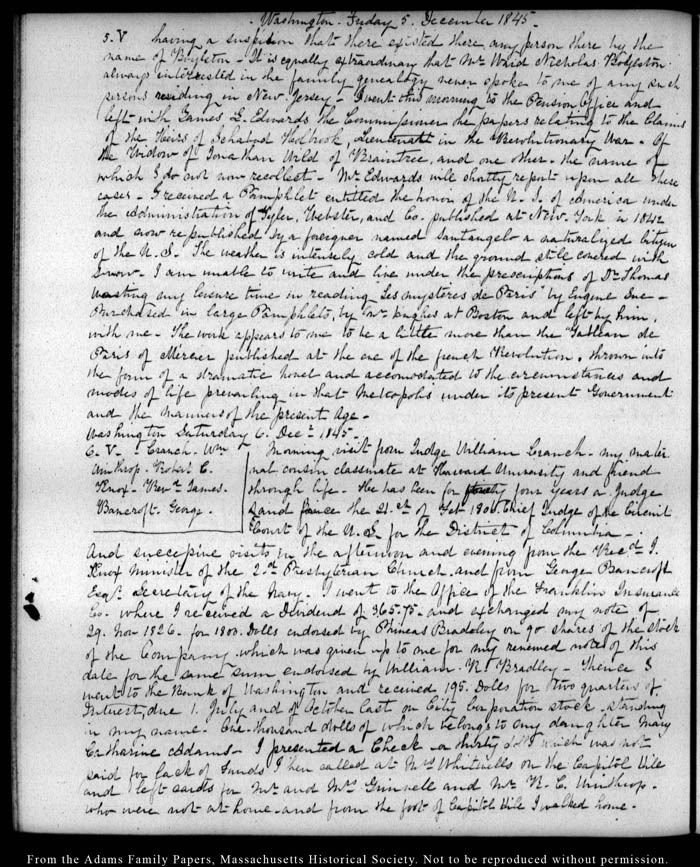 Washington Friday 5. December 1845.
5. V having a suspicion that there existed there any person there by the
name of Boylston - It is equally extraordinary that Mr Ward Nicholas Boylston
always interested in the family genealogy never spoke to me of any such
persons residing in New Jersey - I went this morning to the Pension Office and
left with James L. Edwards the Commissioner the papers relating to the Claims
of the Heirs of Ichabod Holbrook, Lieutenant in the Revolutionary War - Of
the Widow of Jonathan Wild of Braintree, and one other - the name of
which I do not now recollect - Mr Edwards will shortly report upon all these
cases - I received a Pamphlet entitled the honor of the U. S. of America under
the administration of Tyler, Webster, and Co. published at New York in 1842
and now republished by a foreigner named Santangelo a naturalized Citizen
of the U. S. The weather is intensely cold and the ground still covered with
Snow - I am unable to write and live under the prescriptions of Dr Thomas
wasting my leisure time in reading Les mysteres de Paris" by Eugene Sue -
Purchased in large Pamphlets, by Mr Hughes at Boston and left by him,
with me - The work appears to me to be a little more than the "Tableau de
Paris of Mercier published at the eve of the french Revolution, thrown into
the form of a dramatic novel and accomodated to the circumstances and
modes of life prevailing in that Metropolis under its present Government
and the manners of the present Age -
Washington Saturday 6. Decr 1845 -
6. V - Cranch. Wm
Winthrop. Robert C.
Knox - Revd James.
Bancroft. George.
Morning visit from Judge William Cranch - my mater
nal cousin classmate at Harvard University and friend
through life - He has been for forty four years a Judge
and since the 21.st of Feb 1806. Chief Judge of the Circuit
Court of the U. S. for the District of Columbia -
And successive visits in the afternoon and evening from the Revd J.
Knox Minister of the 2.d Presbyterian Church, and from George Bancroft
Esqr. Secretary of the Navy. I went to the Office of the Franklin Insurance
Co. where I received a Dividend of 365.75. and exchanged my note of
29. Nov 1826. for 1800. Dolls endorsed by Phineas Bradley on 90 shares of the stock
of the Company which was given up to me for my renewed note of this
date for the same sum endorsed by William. A. Bradley - Thence I
went to the Bank of Washington and received 195. Dolls for two quarters of
Interest, due 1. July and of October last on City Corporation stock - standing
in my name - One thousand dolls of which belongs to my daughter Mary
Catharine Adams - I presented a Check - a thirty which was not
paid for lack of funds I then called at Mrs Whitwells on the Capitol Hill
and left cards for Mr and Mrs Grinnell and Mr R. C. Winthrop -
who were not at home - and from the foot of Capitol Hill I walked home -
From the Adams Family Papers, Massachusetts Historical Society. Not to be reproduced without permission.